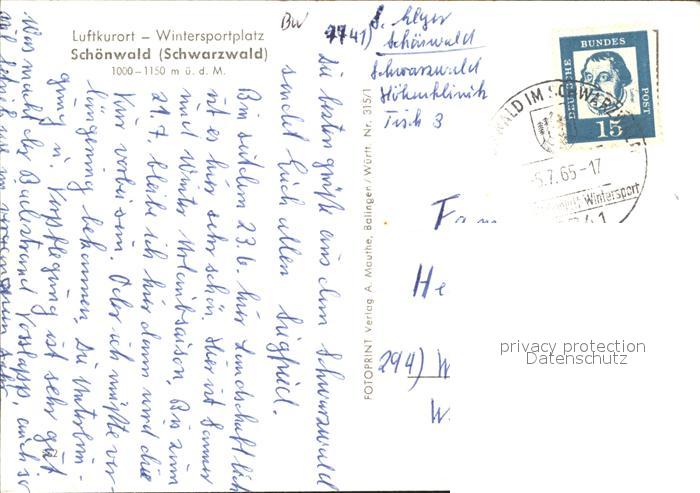 Luftkurort – Wintersportplatz
Schönwald (Schwarzwald)
1000–1150 m ü. d. M.
BW
7741)
Schönwald
Schwarzwald
Höhenklinik
Tisch 3
DEUTSCHE BUNDES POST
15
WALD IM SCHWARZ
5.7.65-17
Wintersport
7741
Fam
He
294) W
W
FOTOPRINT Verlag A. Mauthe, Balingen/Württ. Nr. 315/1
Die besten Grüße aus dem Schwarzwald
sendet Euch allen Siegfried.
Bin seit dem 23.6. hier. Landschaftlich
ist es hier sehr schön. Hier ist Sommer
und Winter Urlaubsaison. Bis zum
21.7. bleibe ich hier dann wird die
Kur vorbei sein. Oder ich müßte ver-
längerung bekommen. Die Unterbrin-
gung u. Verpflegung ist sehr gut
Was macht der Badestrand Vosslapp auch so
privacy protection
Datenschutz